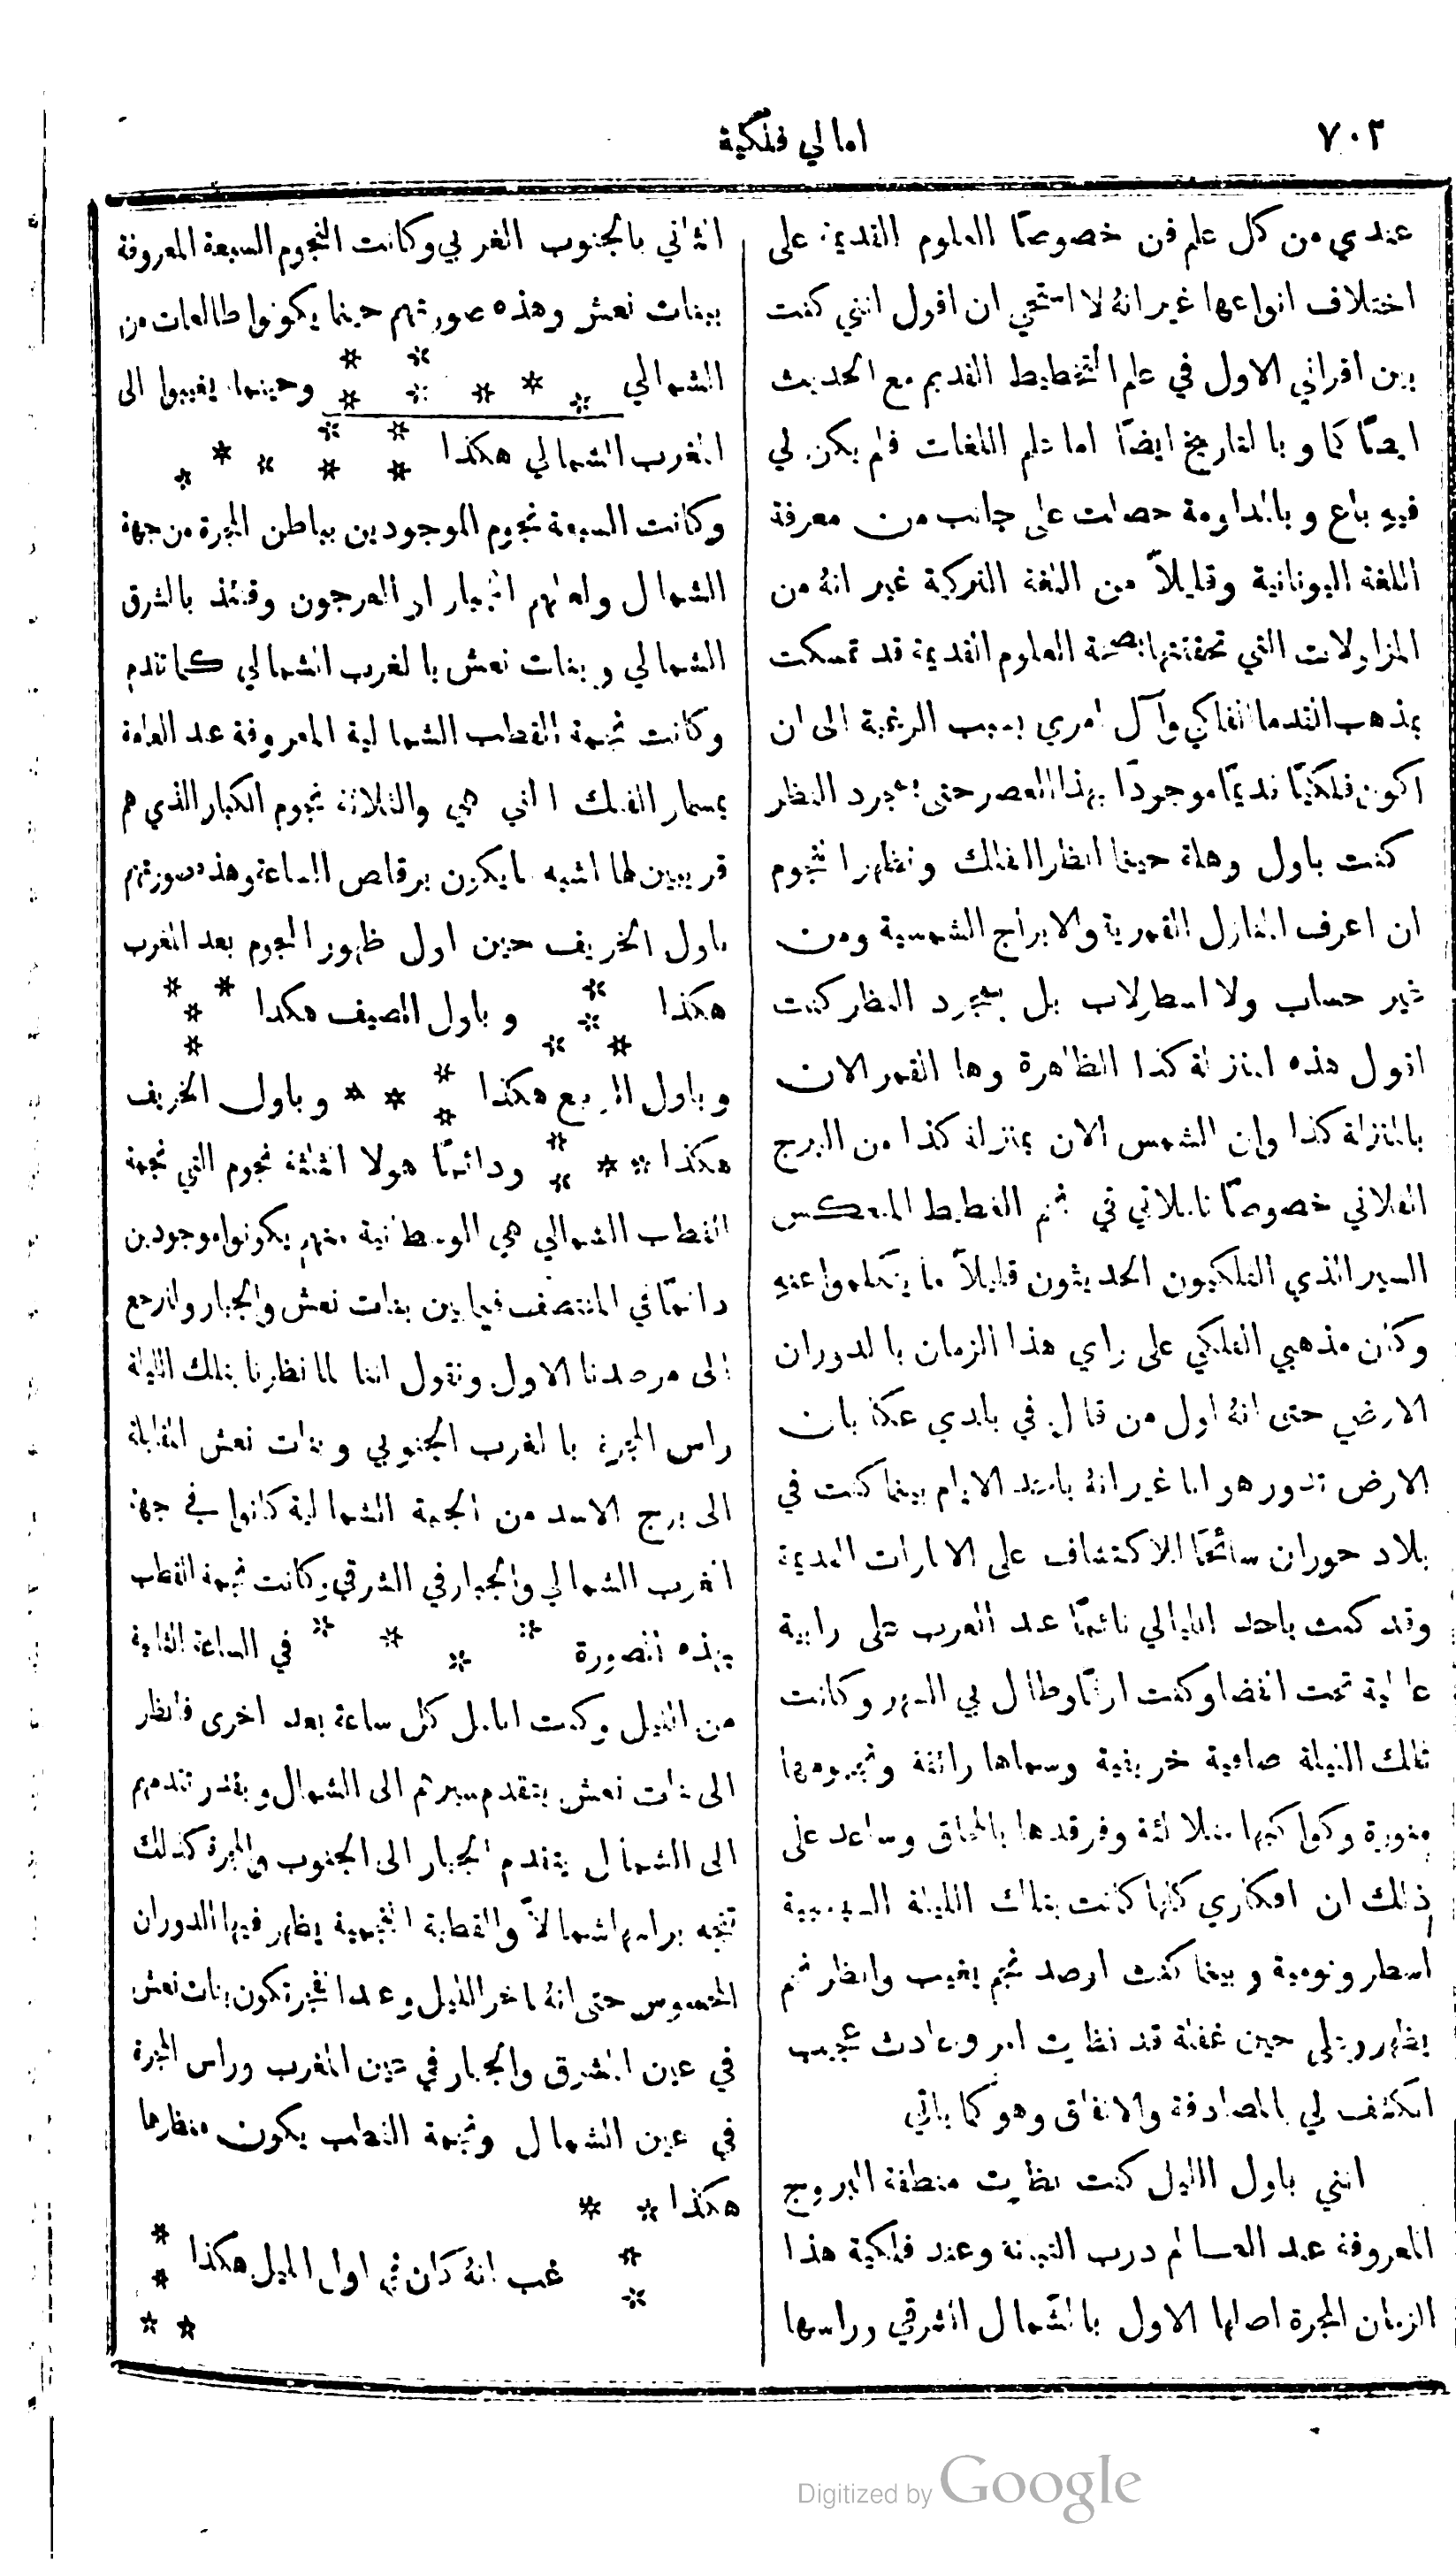 ٧٠٢
امالي فلكية
عندي من كل علم فن خصوصًا العلوم القديمة على
اختلاف انواعها غير انهُ لا استحي ان اقول انني كنت
بين اقراني الاول في علم التخطيط القديم مع الحديث
ايضًا كما و بالتاريخ ايضًا اما علم اللغات فلم يكن لي
فيهِ باع و بالمداومة حصلت على جانب من معرفة
اللغة اليونانية وقليلاً من اللغة التركية غير انهُ من
المزاولات التي تحققتها بصحة العلوم القديمة قد تمسكت
بمذهب القدما الفلكي وآل امري بسبب الرغبة الى ان
اكون فلكيًا قديمًا موجودًا بهذا العصر حتى بمجرد النظر
كنت باول وهلة حينما انظر الفلك وتظهر النجوم
ان اعرف المنازل القمرية والابراج الشمسية ومن
غير حساب ولا اسطرلاب بل بمجرد النظر كنت
اقول هذه المنزلة كذا الظاهرة وها القمر الان
بالمنزلة كذا وان الشمس الان بمنزلة كذا من البرج
الفلاني خصوصًا في نجم القطيط المنعكس
السير الذي الفلكيون الحديثون قليلاً ما يتكلموا عنهِ
وكان مذهبي الفلكي على راي هذا الزمان بالدوران
الارضي حتى انهُ اول من قال في بلدي عكا بان
الارض تدور هو انا غير انهُ باحد الايام بينما كنت في
بلاد حوران سائحًا للاكتشاف على الاثارات القديمة
وقد كنت باحد الليالي نائمًا عند العرب على رابية
عالية تحت الفضا وكنت ارقًا وطال بي السهر وكانت
تلك الليلة صافية خريفية وسماها رائقة ونجومها
منورة وكواكبها متلالئة وفرقدها بالمحاق وساعد على
ذلك ان افكاري كلها كانت بتلك الليلة
اسطرونومية و بينما كنت ارصد نجم يغيب وانظر نجم
يظهر وعلى حين غفلة قد نظرت امر وحادث عجيب
انكشف لي بالمصادفة والاتفاق وهو كما ياتي
انني باول الليل كنت نظرت منطقة البروج
المعروفة عند العسالم درب التبانة وعند فلكية هذا
الزمان المجرة اصلها الاول بالشمال الشرقي وراسها
الثاني بالجنوب الغربي وكانت النجوم السبعة المعروفة
ببنات نعش وهذه صورتهم حينما يكونوا طالعات من
الشمالي وحينما يغيبوا الى
المغرب الشمالي هكذا
وكانت السبعة نجوم الموجودين بباطن المجرة من جهة
الشمال ولعلهم الجبار او العرجون وقتئذ بالشرق
الشمالي و بنات نعش بالغرب الشمالي كما تقدم
وكانت نجمة القطب الشمالية المعروفة عند العامة
بمسمار الفلك التي هي والثلاثة نجوم الكبار الذي هم
قريبين لها اشبه ما يكون برقاص الساعة وهذه صورتهم
باول الخريف حين اول ظهور النجوم بعد المغرب
هكذا و باول الصيف هكذا
و باول الربيع هكذا و باول الخريف
هكذا ودائمًا هولا الثلثة نجوم التي نجمة
القطب الشمالي هي الوسطانية منهم يكونوا موجودين
دائمًا في المنتصف فيما بين بنات نعش والجبار ولنرجع
الى مرصدنا الاول ونقول اننا لما نظرنا بتلك الليلة
راس المجرة بالغرب الجنوبي وبنات نعش المقابلة
الى برج الاسد من الجهة الشمالية كانوا في جهة
الغرب الشمالي والجبار في الشرقي وكانت نجمة القطب
بهذه الصورة في الساعة الثانية
من الليل وكنت اتامل كل ساعة بعد اخرى فانظر
الى بنات نعش بتقدم سيرهم الى الشمال وبقدر تقدمهم
الى الشمال يتقدم الجبار الى الجنوب والمجرة كذلك
تتجه براسها شمالاً والقطبة النجمية يظهر فيها الدوران
المحسوس حتى انهُ باخر الليل وعند الفجر تكون بنات نعش
في عين المشرق والجبار في عين المغرب وراس المجرة
في عين الشمال ونجمة القطب يكون منظرها
هكذا
غب انهُ كان في اول الليل هكذا
Digitized by Google